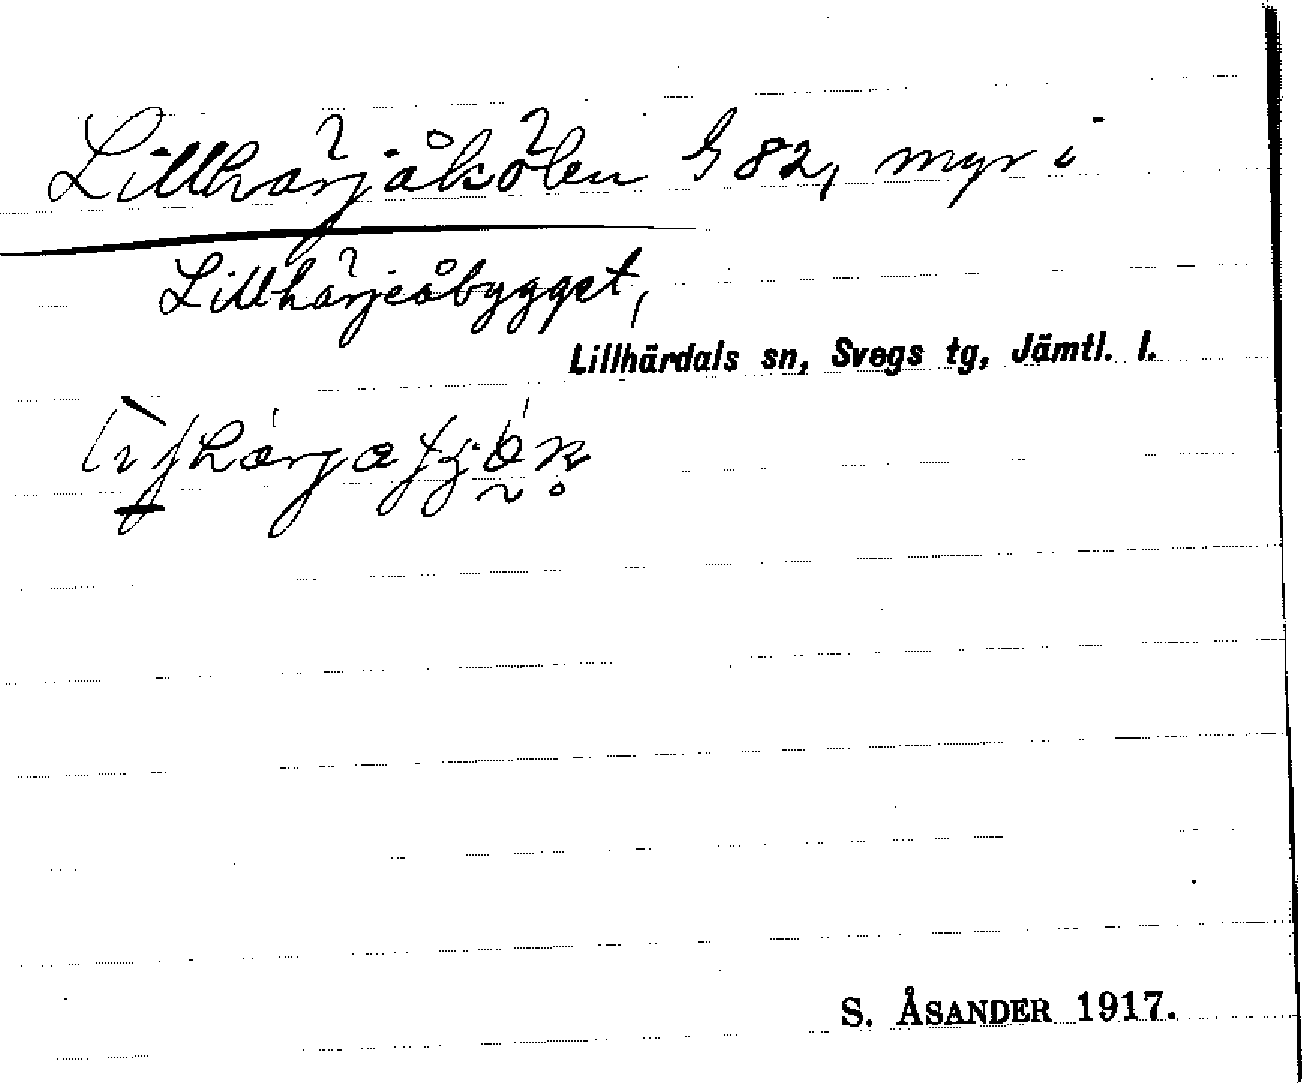 Lillhärjåkölen G 82, myr i
Lillhärjeåbygget,
Lillhärdals sn, Svegs tg, Jämtl. l.
S. ÅSANDER 1917.